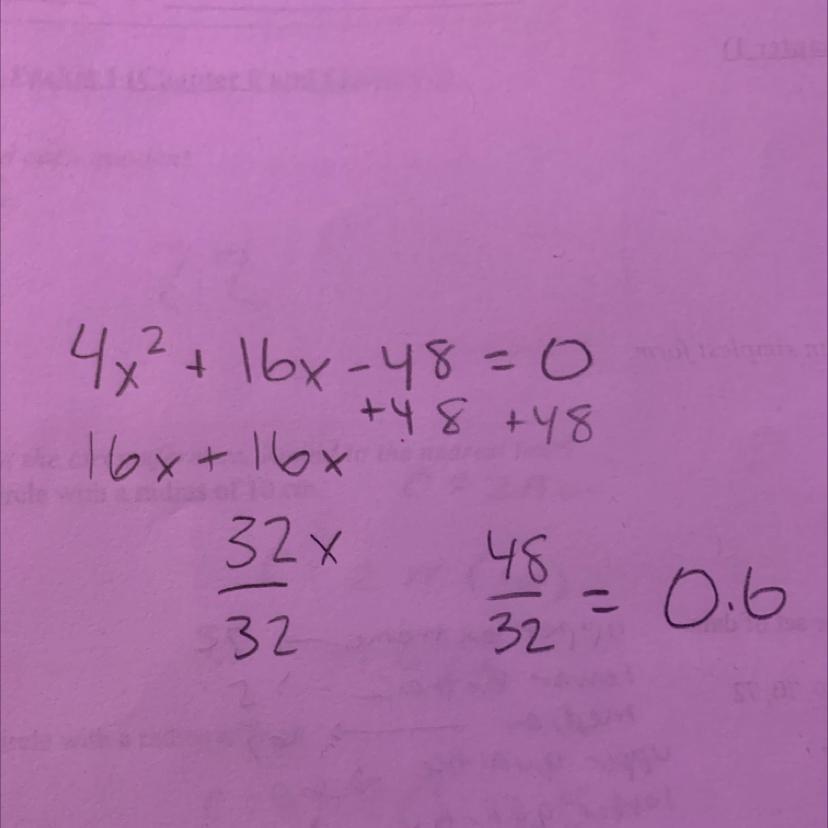 4x² + 16x - 48 = 0
+48 +48
16x + 16x
32x 48
— — = 0.6
32 32